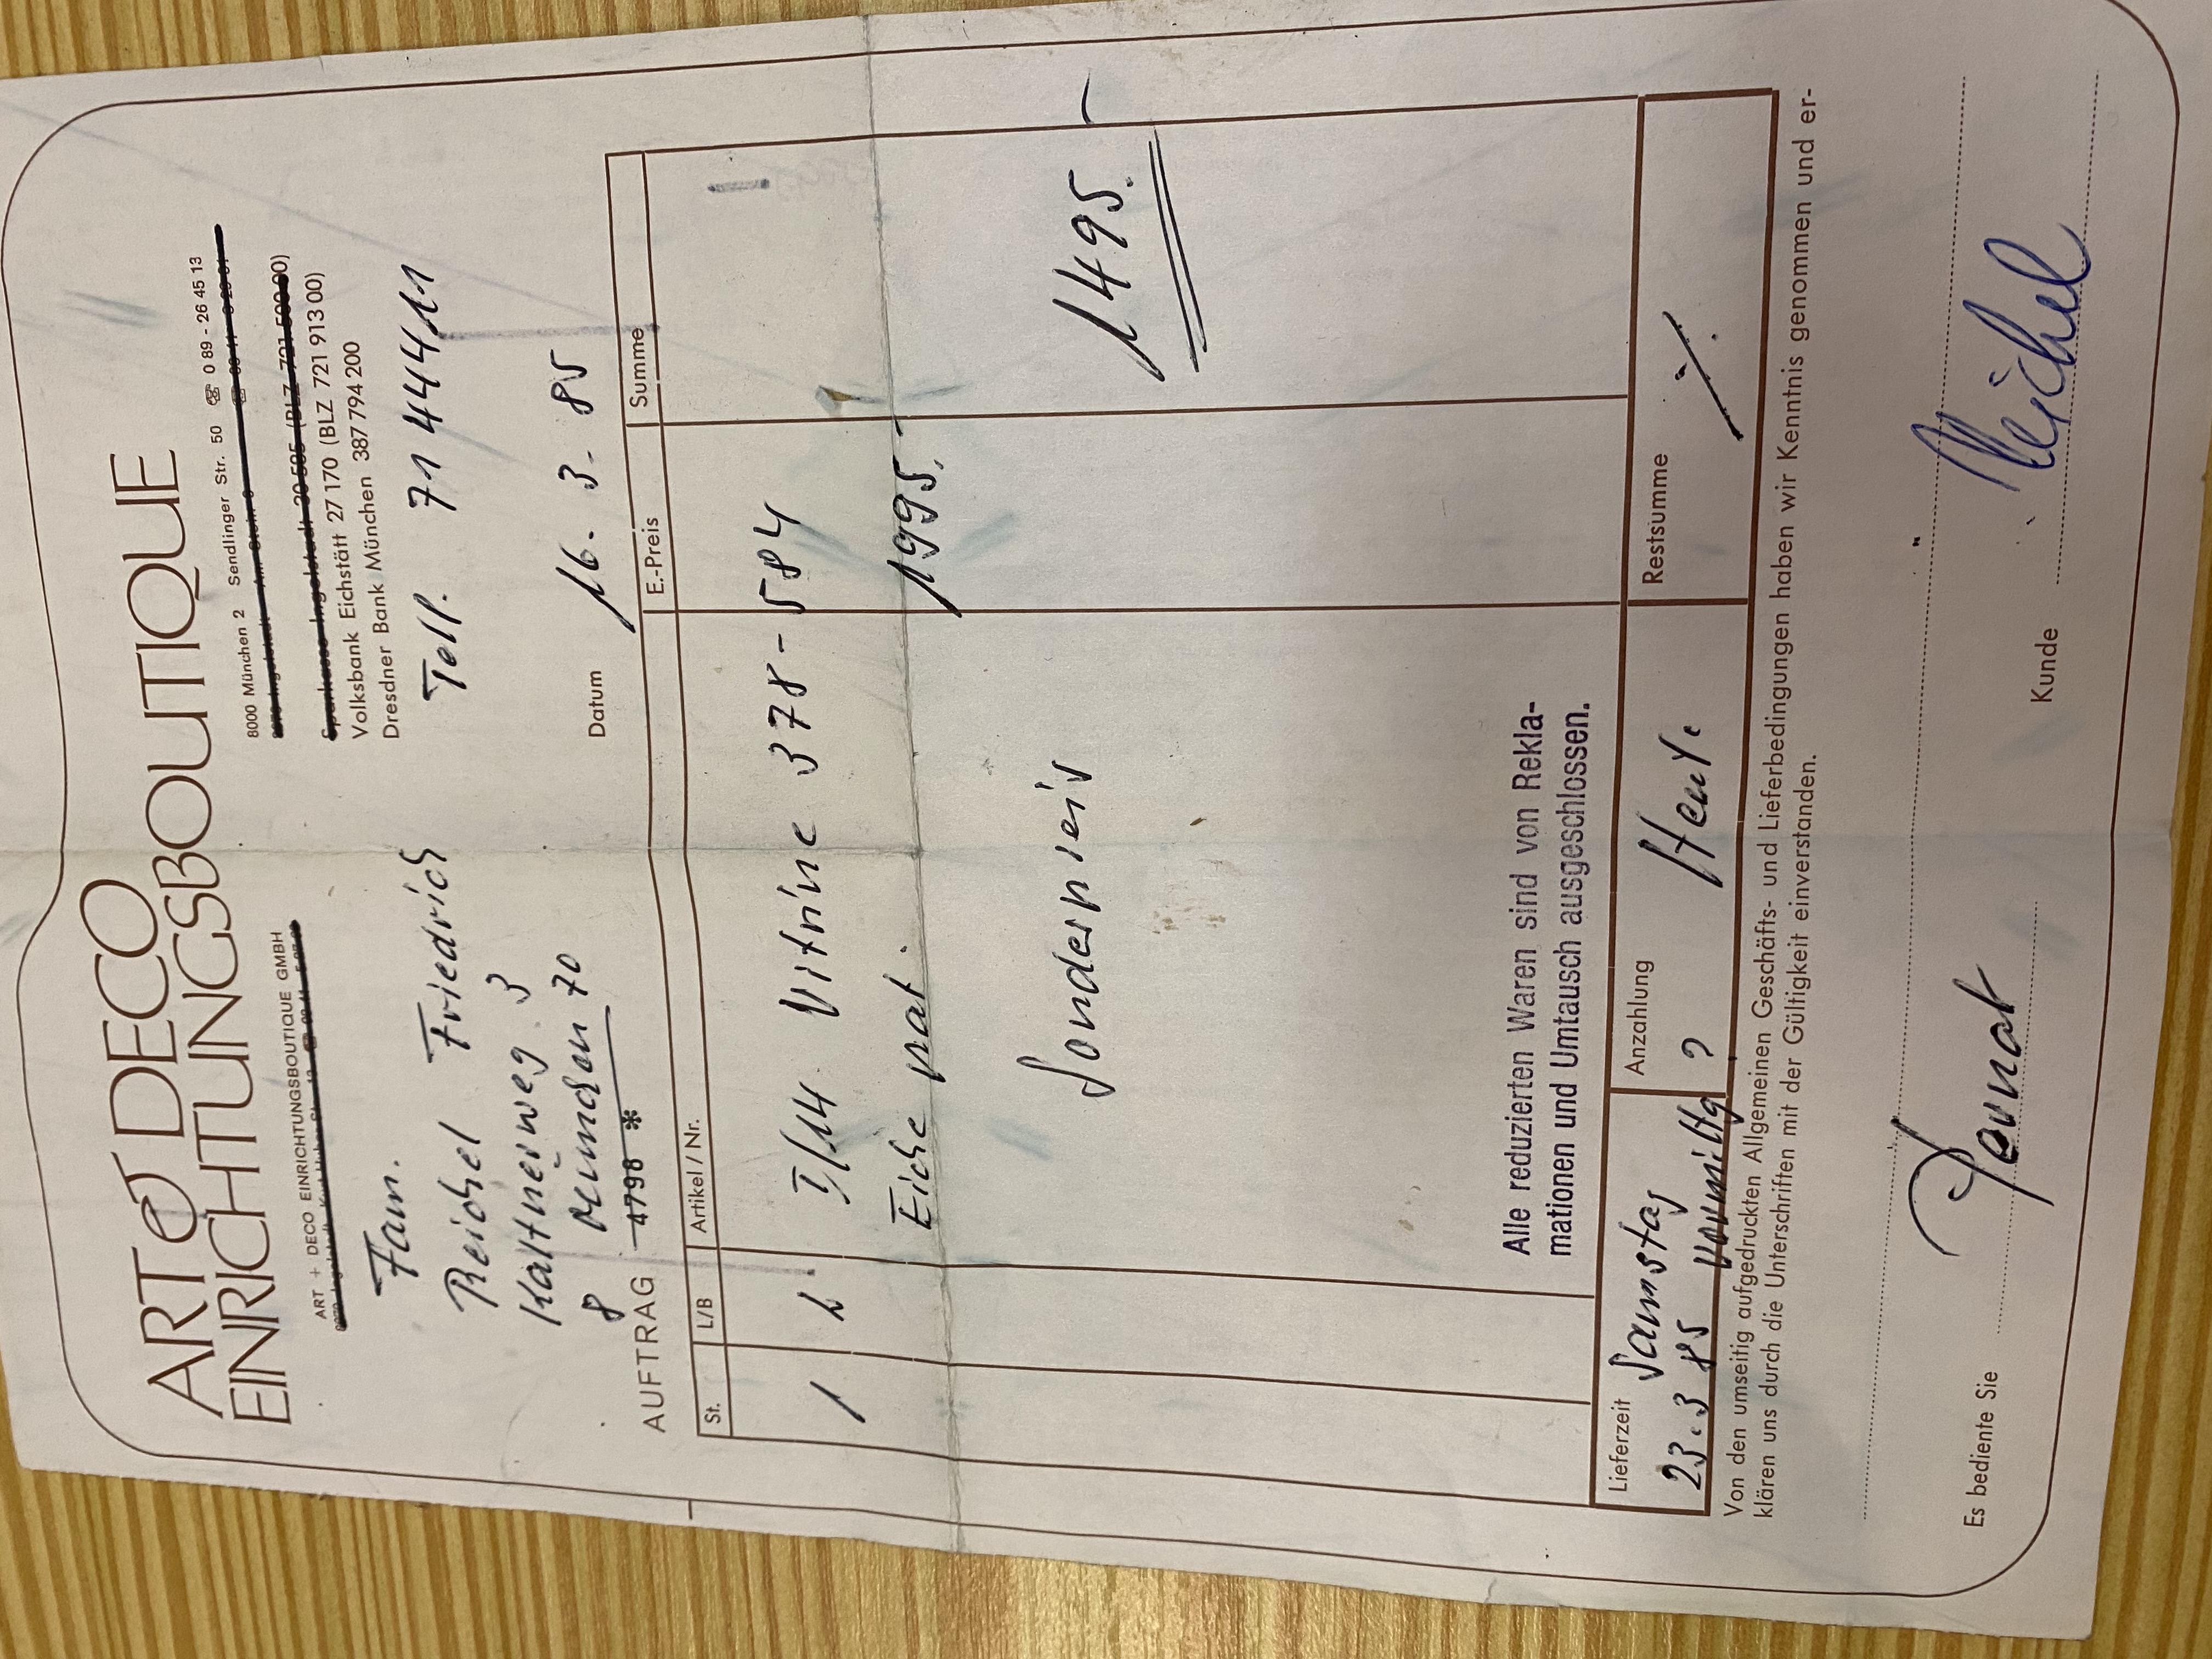 ART & DECO
EINRICHTUNGSBOUTIQUE
ART + DECO EINRICHTUNGSBOUTIQUE GMBH
8000 München 2 Sendlinger Str. 50 ☏ 0 89 - 26 45 13
Sparkasse Ingolstadt 20 505 (BLZ 721 500 00)
Volksbank Eichstätt 27 170 (BLZ 721 913 00)
Dresdner Bank München 387 794 200
Fam.
Reichel Friedrich
Kalternerweg 3
8 München 70
Tell. 71 444 11
AUFTRAG 4798 *
Datum 16. 3. 85
St. L/B Artikel / Nr. E.-Preis Summe
1 L I/14 Vitrine 378-584
Eiche nat. 1995.-
Sonderpreis 1495.-
Alle reduzierten Waren sind von Rekla-
mationen und Umtausch ausgeschlossen.
Lieferzeit Samstag
23.3 85 vormittg ?
Anzahlung Heute
Restsumme ./.
Von den umseitig aufgedruckten Allgemeinen Geschäfts- und Lieferbedingungen haben wir Kenntnis genommen und er-
klären uns durch die Unterschriften mit der Gültigkeit einverstanden.
Es bediente Sie
Kunde Reichel